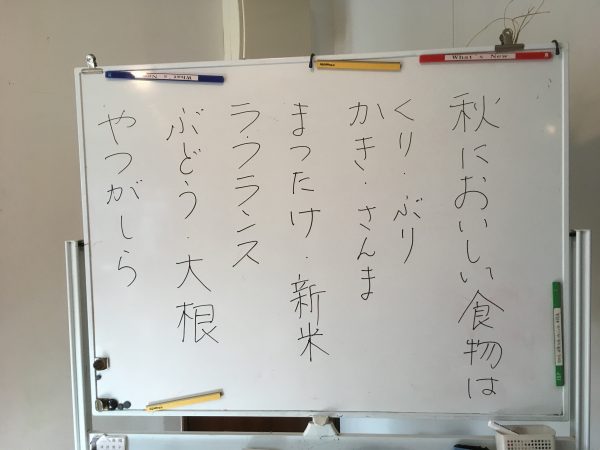 秋においしい食物は
くり・ぶり
かき・さんま
まつたけ・新米
ラフランス
ぶどう・大根
やつがしら
What's New